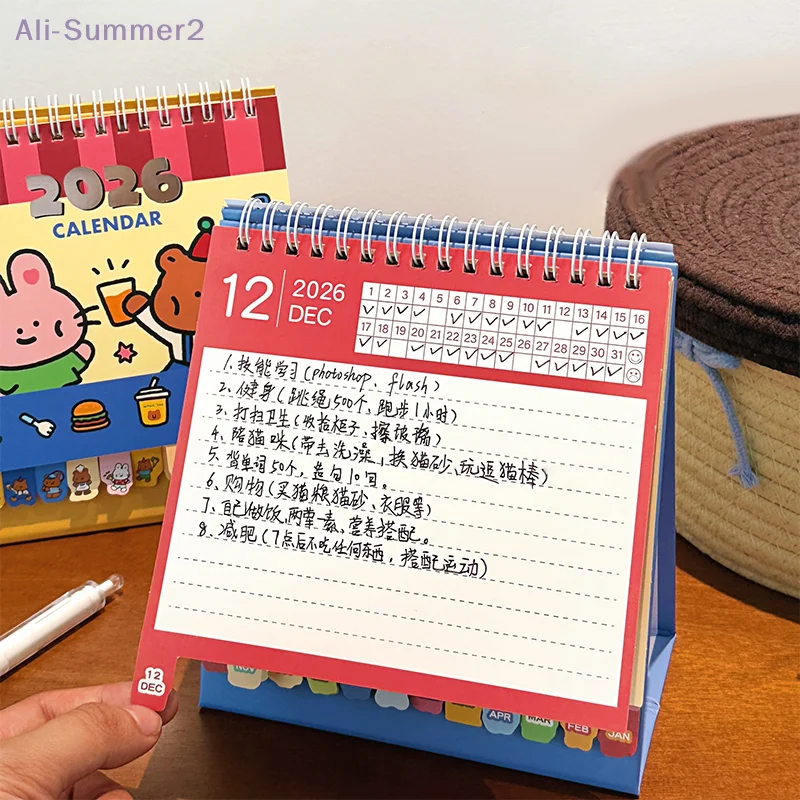 Ali-Summer2
2026
CALENDAR
12
2026
DEC
1 2 3 4 5 6 7 8 9 10 11 12 13 14 15 16
17 18 19 20 21 22 23 24 25 26 27 28 29 30 31
1. 技能学习(photoshop、flash)
2. 健身(跳绳500个、跑步1小时)
3. 打扫卫生(收拾柜子、擦玻璃)
4. 陪猫咪(带去洗澡,换猫砂、玩逗猫棒)
5. 背单词50个,造句10回。
6. 购物(买猫粮猫砂、衣服等)
7. 自己做饭,两荤一素、营养搭配。
8. 减肥(7点后不吃任何东西,搭配运动)
12
DEC
NOV
APR
MAR
FEB
JAN